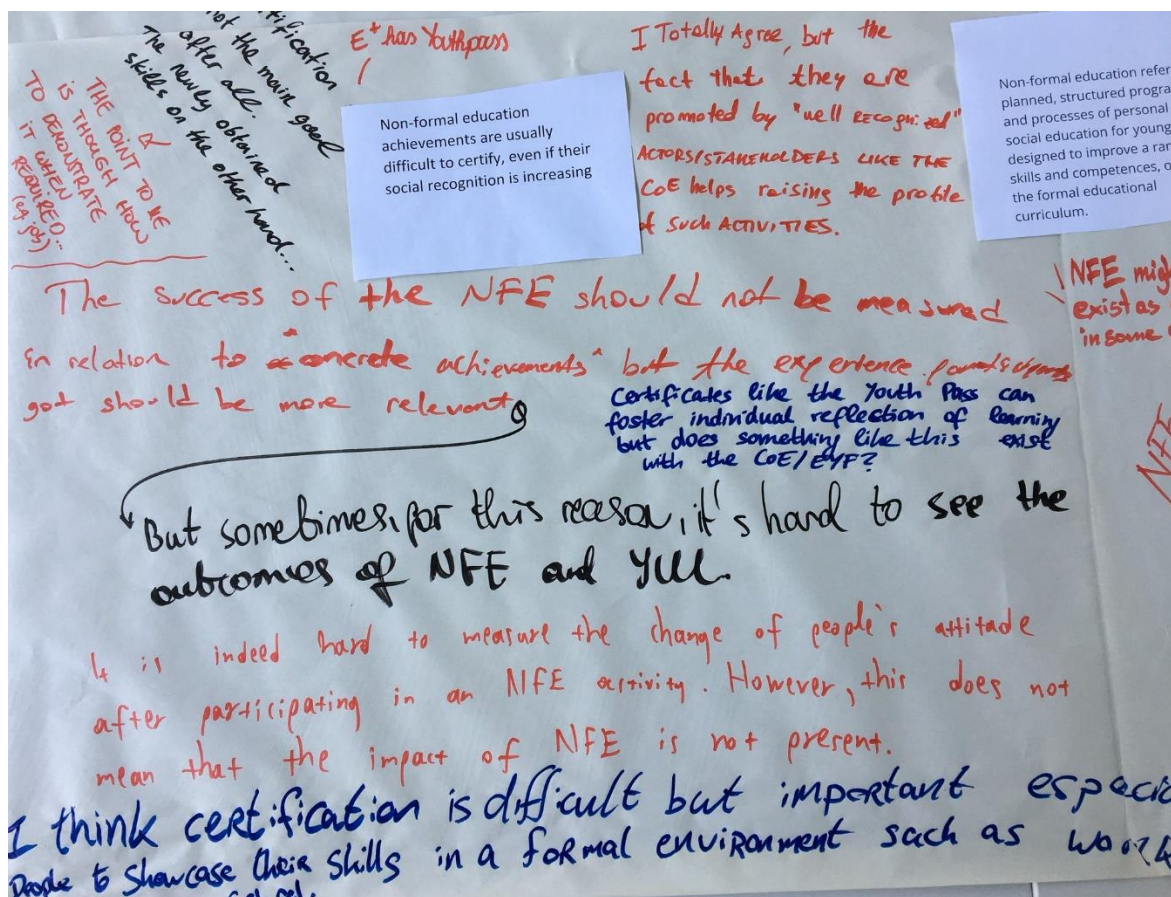 tification
not the main goal
after all.
The newly obtained
skills on the other hand...
THE POINT TO ME
IS THOUGH HOW
TO DEMONSTRATE
IT WHEN
REQUIRED...
(eg job)
E+ has Youthpass
Non-formal education
achievements are usually
difficult to certify, even if their
social recognition is increasing
I Totally Agree, but the
fact that they are
promoted by "well RECOGNIZED"
ACTORS/STAKEHOLDERS LIKE THE
CoE helps raising the profile
of such ACTIVITIES.
Non-formal education refer
planned, structured progra
and processes of personal
social education for young
designed to improve a ran
skills and competences, o
the formal educational
curriculum.
NFE mig
exist as
in some
The success of the NFE should not be measured
in relation to "concrete achievements" but the experience participants
got should be more relevant
Certificates like the Youth Pass can
foster individual reflection of learning
but does something like this exist
with the CoE/EYF?
But sometimes, for this reason, it's hard to see the
outcomes of NFE and
It is indeed hard to measure the change of people's attitude
after participating in an NFE activity. However, this does not
mean that the impact of NFE is not present.
I think certification is difficult but important espacia
People to showcase their skills in a formal environment such as work